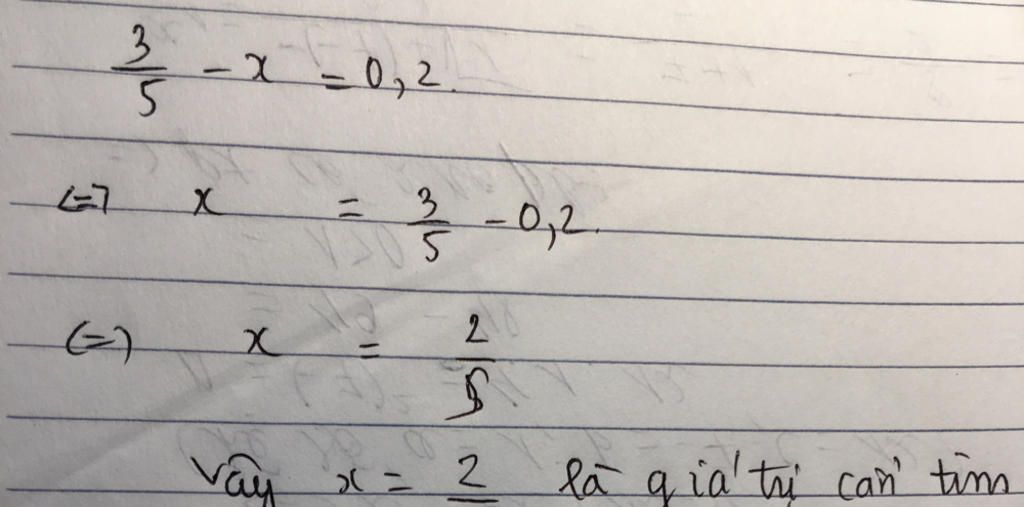 3/5 - x = 0,2.
<=> x = 3/5 - 0,2.
<=> x = 2/5
Vậy x = 2 là giá trị cần tìm